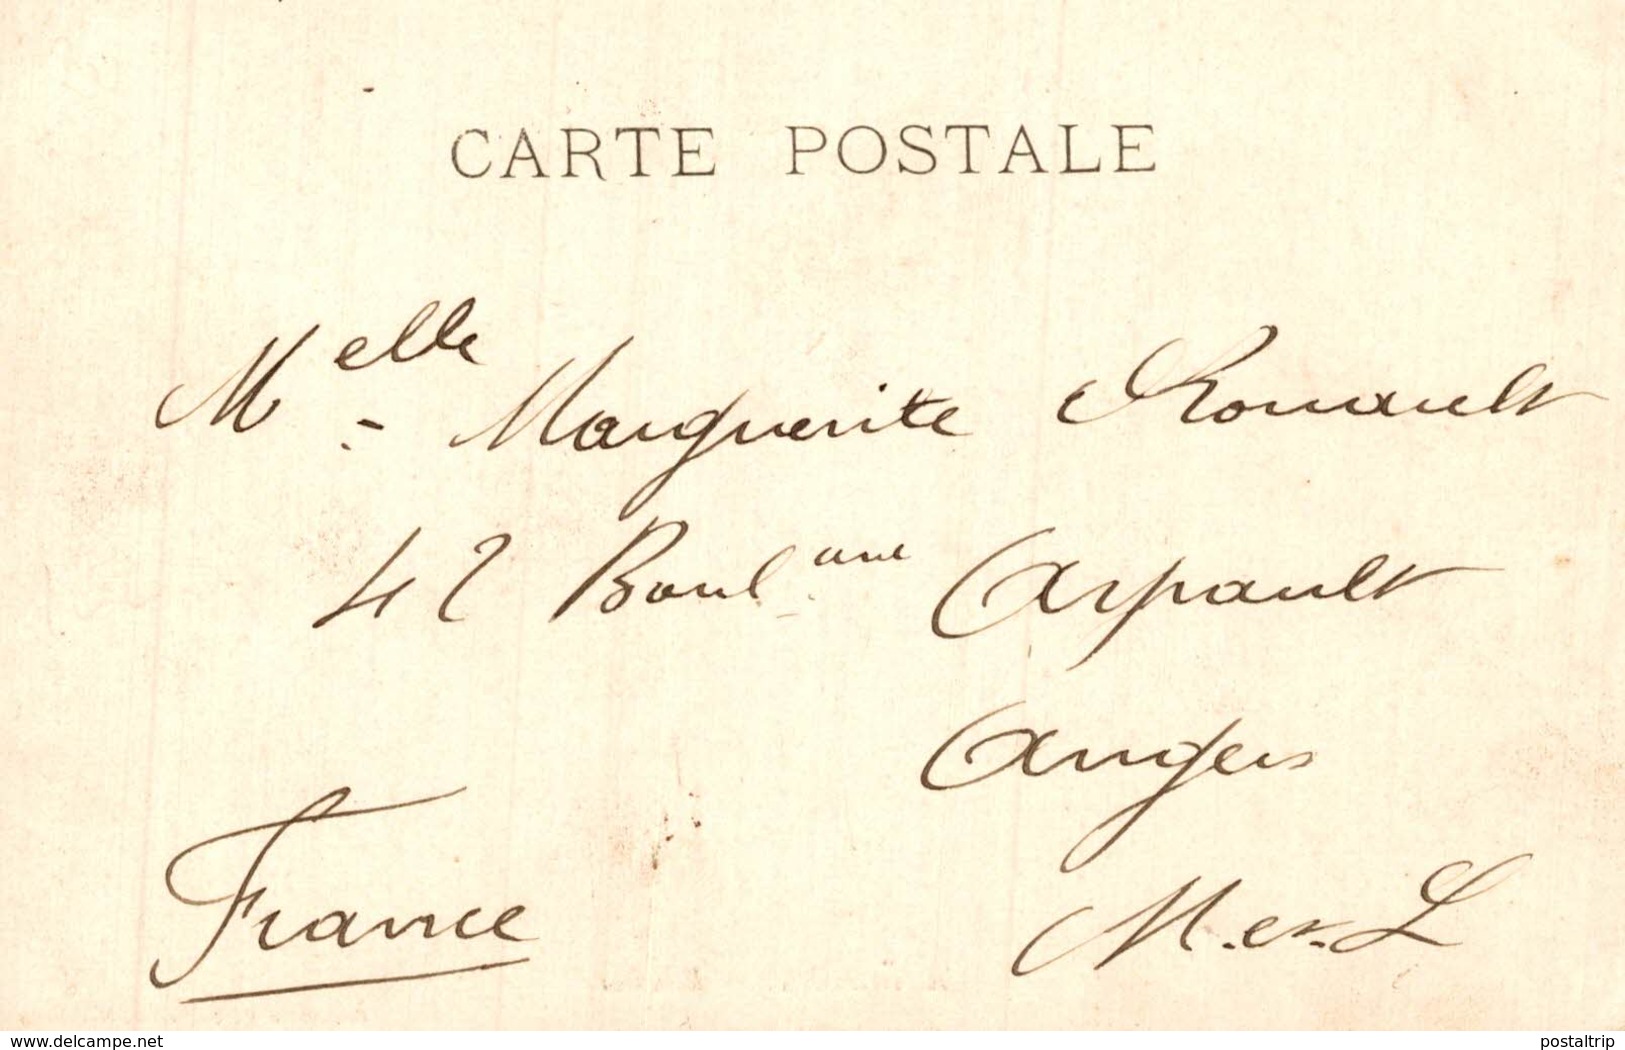 CARTE POSTALE
Melle Marguerite Rouault
42 Boul. Arpault
Angers
France
M. et. L
www.delcampe.net
postaltrip